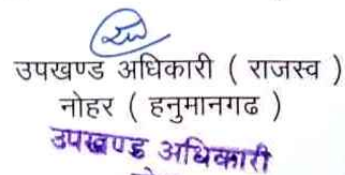 उपखण्ड अधिकारी ( राजस्व )
नोहर ( हनुमानगढ )
उपखण्ड अधिकारी